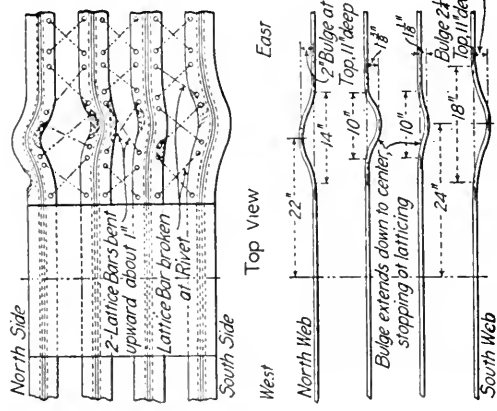 North Side
2-Lattice Bars bent
upward about 1"
Lattice Bar broken
at Rivet
South Side
Top View
West
East
North Web
22"
14"
10"
2" Bulge at
Top, 11" deep
1⅛"
Bulge extends down to center,
stopping at latticing
10"
1⅛"
24"
18"
Bulge
Top, 11" deep
South Web